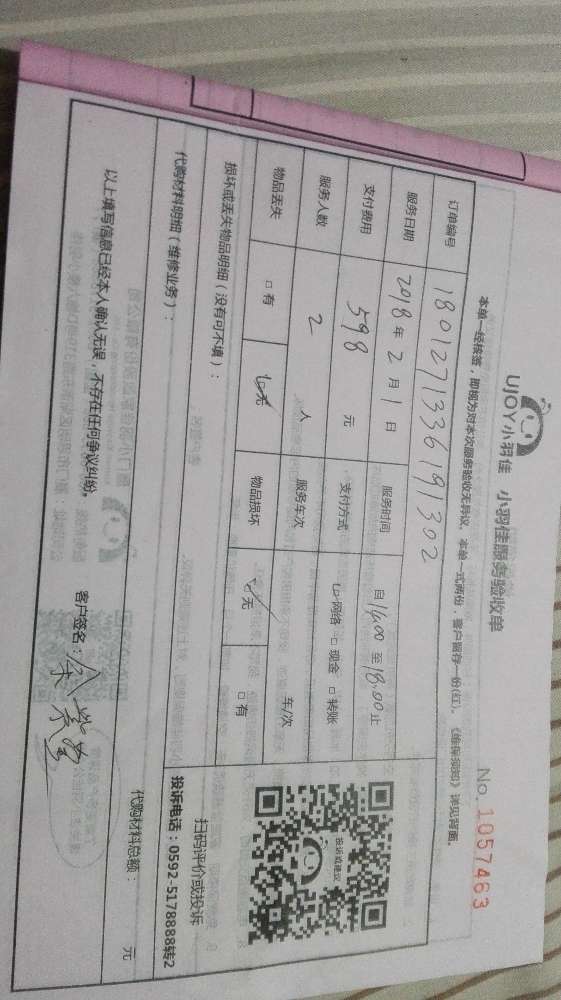 UJOY小羽佳 小羽佳服务验收单
No. 1057463
本单一经核签，即视为对本次服务验收无异议，本单一式两份，客户留存一份(红)。《维保须知》详见背面。
订单编号 180127133619130​2
服务日期 2018 年 2 月 1 日 服务时间 自 14:00 至 18:00 止
支付费用 598 元 支付方式 ☑网络 □现金 □转账
服务人数 2 人 服务车次 车/次
物品丢失 □有 ☑无 物品损坏 ☑无 □有
损坏或丢失物品明细（没有可不填）：
投诉或建议
扫码评价或投诉
投诉电话：0592-5178888转2
代购材料明细（维修业务）：
代购材料总额： 元
以上填写信息已经本人确认无误，不存在任何争议纠纷。
客户签名：